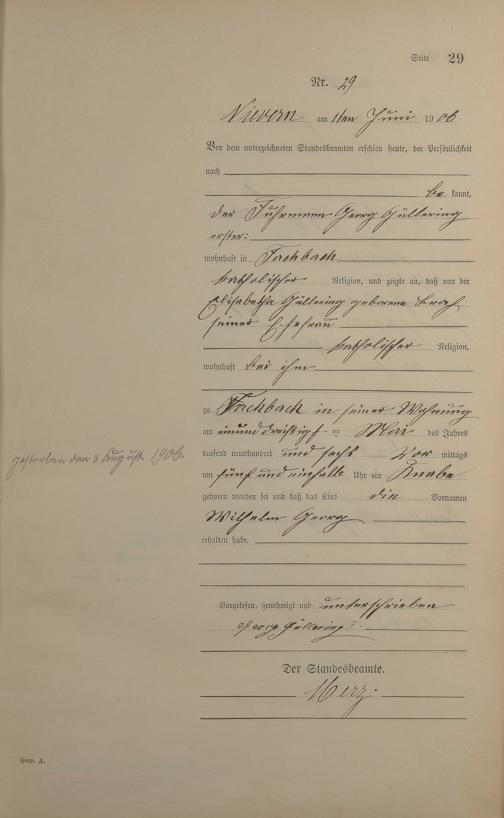 Seite 29
Nr. 29
Nievern am 1ten Juni 1906
Vor dem unterzeichneten Standesbeamten erschien heute, der Persönlichkeit
nach
be kannt,
der Fuhrmann Georg Güllering
erster:
wohnhaft in Fachbach
katholischer Religion, und zeigte an, daß von der
Elisabetha Güllering geborene
seiner Ehefrau
katholischer Religion,
wohnhaft bei ihm
zu Fachbach in seiner Wohnung
am einunddreißigst = Mai des Jahres
tausend neunhundert und sechs Vor mittags
um fünf und einhalb Uhr ein Knabe
geboren worden sei und daß das Kind die Vornamen
Wilhelm Georg
erhalten habe.
gestorben den 8 August 1906.
Vorgelesen, genehmigt und unterschrieben
Georg Güllering I.
Der Standesbeamte.
Merz.
Form. A.